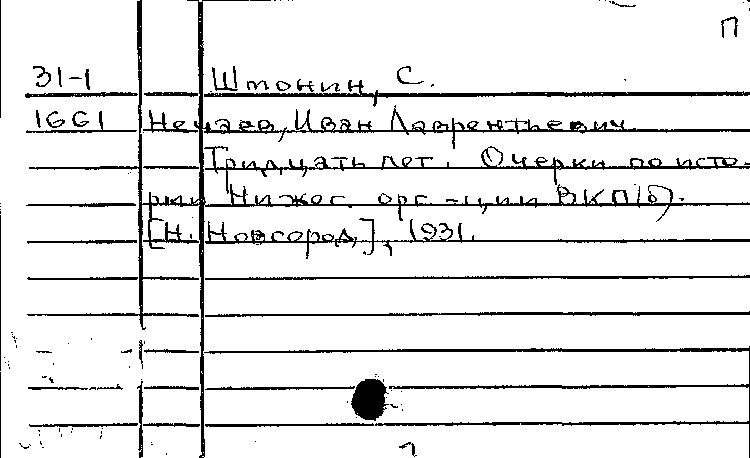 П
31-1 Штонин, С.
1661 Нечаев, Иван Лаврентьевич.
Тридцать лет. Очерки по исто-
рии Нижег. орг-ции ВКП(б).
[Н. Новгород], 1931.